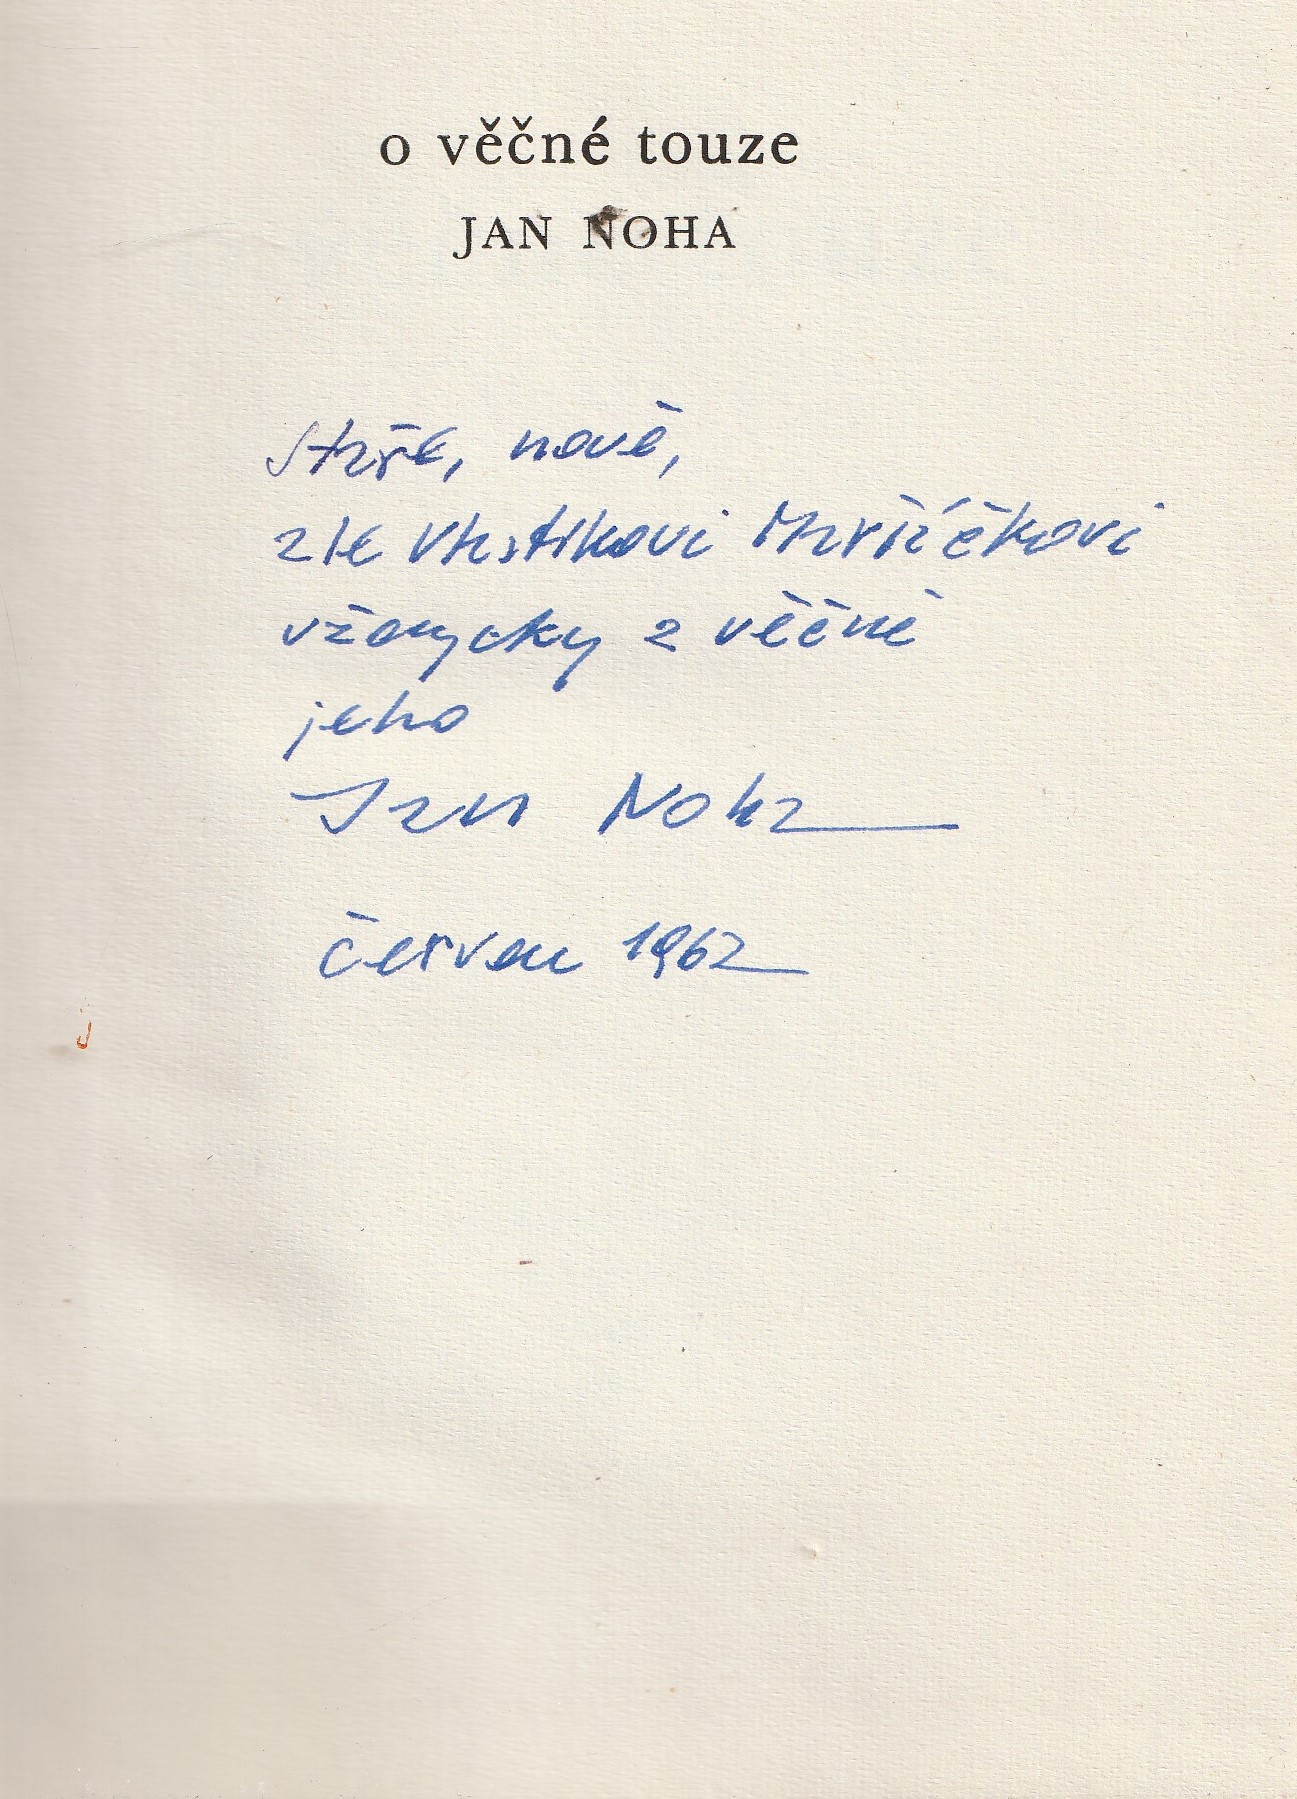 o věčné touze
JAN NOHA
staře, nově,
ale Vlastíkovi Maříčkovi
vždycky a věčně
jeho
Jan Noha
červen 1962